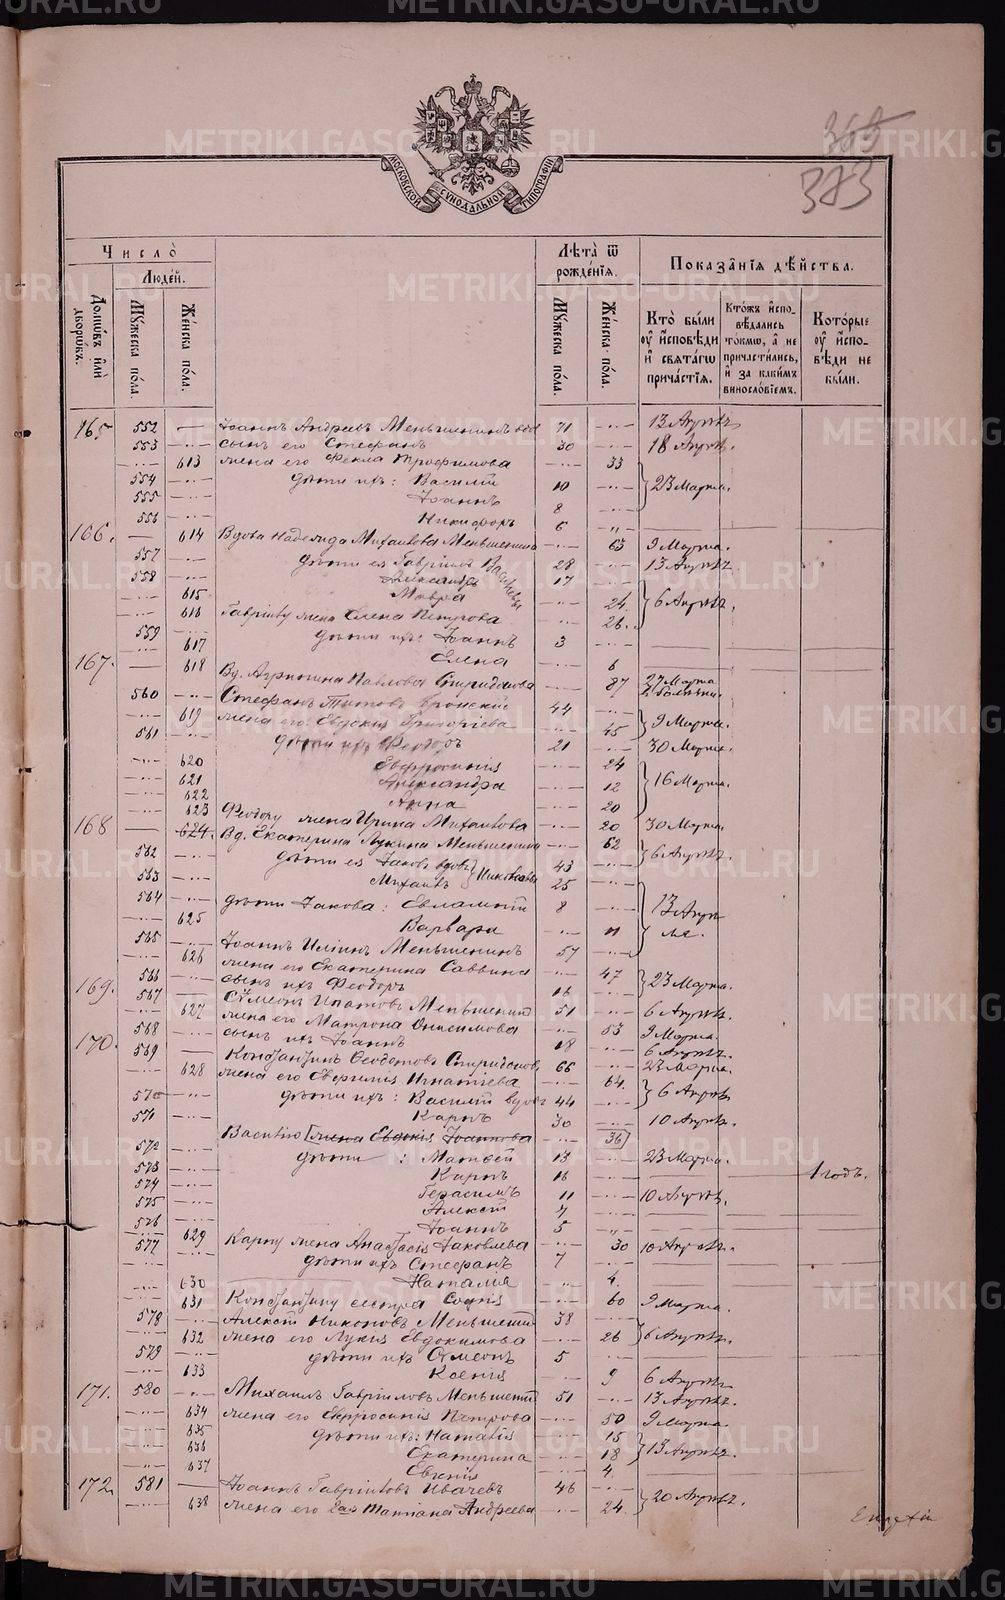 METRIKI.GASO-URAL.RU
373
МОСКОВСКОЙ СѴНОДАЛЬНОЙ ТИПОГРАФІИ
Число̀
Людей.
Домѡвъ и҆лѝ дворѡвъ.
Мꙋжеска пола.
Же́нска по́ла.
Лѣта̀ ѿ рожде́нїѧ.
Мꙋжеска пола.
Же́нска пола.
Показа̑нїѧ дѣ́йства.
Кто̀ бы́ли ᲂу҆ и҆сповѣди и҆ свѧта́гѡ прича́стїѧ.
Ктожъ и҆сповѣдались то́кмѡ, а҆ не причасти́лись, и҆ за каки́мъ винословїемъ.
Кото́рые ᲂу҆ и҆сповѣди не бы́ли.
165 552 — Іоаннъ Андреевъ Меньшенинъ вдов 71 13 Апрѣль
553 сынъ его Стефанъ 30 18 Апрѣль.
613 жена его Фекла Трофимова 33
554 дѣти ихъ: Василій 10 23 Марта.
555 Іоаннъ 8
556 Никифоръ 6
166. — 614 Вдова Надежда Михаилова Меньшенина 63 9 Марта.
557 дѣти ея Гавріилъ Васильевы 28 13 Апрѣль
558 Александръ 17
615 Мавра 24 6 Апрѣль.
616 Гавріилу жена Елена Петрова 26.
559 дѣти ихъ: Іоаннъ 3
617 Елена 6
167. — 618 Вд. Агрипина Павлова Спиридонова 87 27 Марта
560 Стефанъ Титовъ 44
619 жена его Евдокія Григоріева 45 9 Марта.
561 дѣти ихъ Феодоръ 21 30 Марта.
620 Евфросинія 24
621 Александра 12 16 Марта.
622 Анна 20
623 Феодору жена Ирина Михаилова 20 30 Марта.
168 — 624. Вд. Екатерина Лукина Меньшенина 62 6 Апрѣль.
562 дѣти ея Іаковъ вдовъ Николаевы 43
563 Михаилъ 25
564 дѣти Іакова: Евлампій 8 13 Апрѣля.
625 Варвара 11
565 Іоаннъ Иліинъ Меньшенинъ 57
626 жена его Екатерина Саввина 47 23 Марта.
566 сынъ ихъ Феодоръ 16
169. 567 Сѵмеонъ Ипатовъ Меньшенинъ 51 6 Апрѣль.
627 жена его Матрона Онисимова 53 9 Марта.
568 сынъ ихъ Іоаннъ 18 6 Апрѣль.
170. 569 — Константинъ Феодотовъ Спиридоновъ 66 23 Марта.
628 жена его Евгенія Игнатіева 64.
570 дѣти ихъ: Василій вдовъ 44 6 Апрѣль
571 Карпъ 30 10 Апрѣль.
Василію [жена Евдокія Іоаннова 36]
572 дѣти : Матвей 13 23 Марта.
573 Карпъ 16 1 годъ.
574 Герасимъ 11 10 Апрѣль.
575 Алексій 7
576 Іоаннъ 5
629 Карпу жена Анастасія Іаковлева 30 10 Апрѣль.
577 дѣти ихъ Стефанъ 7
630 Наталія 4.
631 Константину сестра Софія 60 9 Марта.
578 Алексій Никоновъ Меньшенинъ 38
632 жена его Лукія Евдокимова 26 6 Апрѣль.
579 дѣти ихъ Сѵмеонъ 5
633 Ксенія 9 6 Апрѣль
171. 580 Михаилъ Гавріиловъ Меньшенинъ 51 13 Апрѣль.
634 жена его Евфросинія Петрова 50 9 Марта.
635 дѣти ихъ: Наталія 15
636 Екатерина 18 13 Апрѣль.
637 Евгенія 4.
172. 581 — Іоаннъ Гавріиловъ Ивачевъ 46
638 жена его 2ая Татіана Андреева 24. 20 Апрѣль.